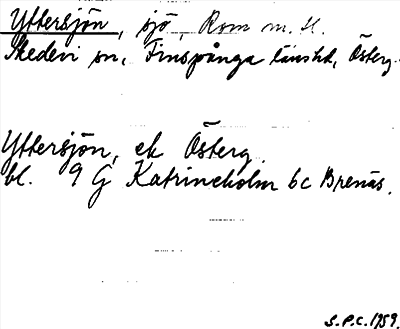 Yttersjön, sjö, Rom m. fl.
Skedevi sn, Finspånga länshd, Österg.
Yttersjön, ek Österg.
bl. 9 G Katrineholm bc Brenäs.
S.P.C. 1959.